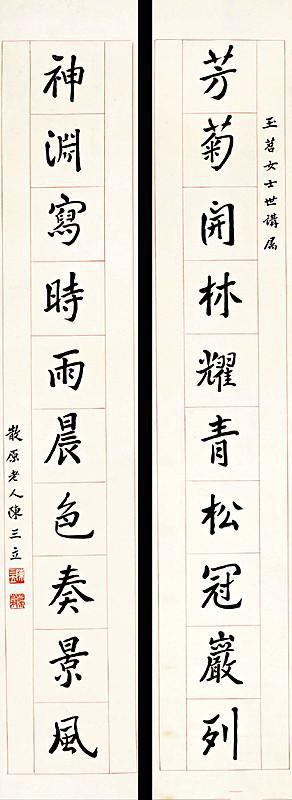 玉茗女士世講属
芳菊開林耀青松冠巖列
神淵寫時雨晨色奏景風
散原老人陳三立